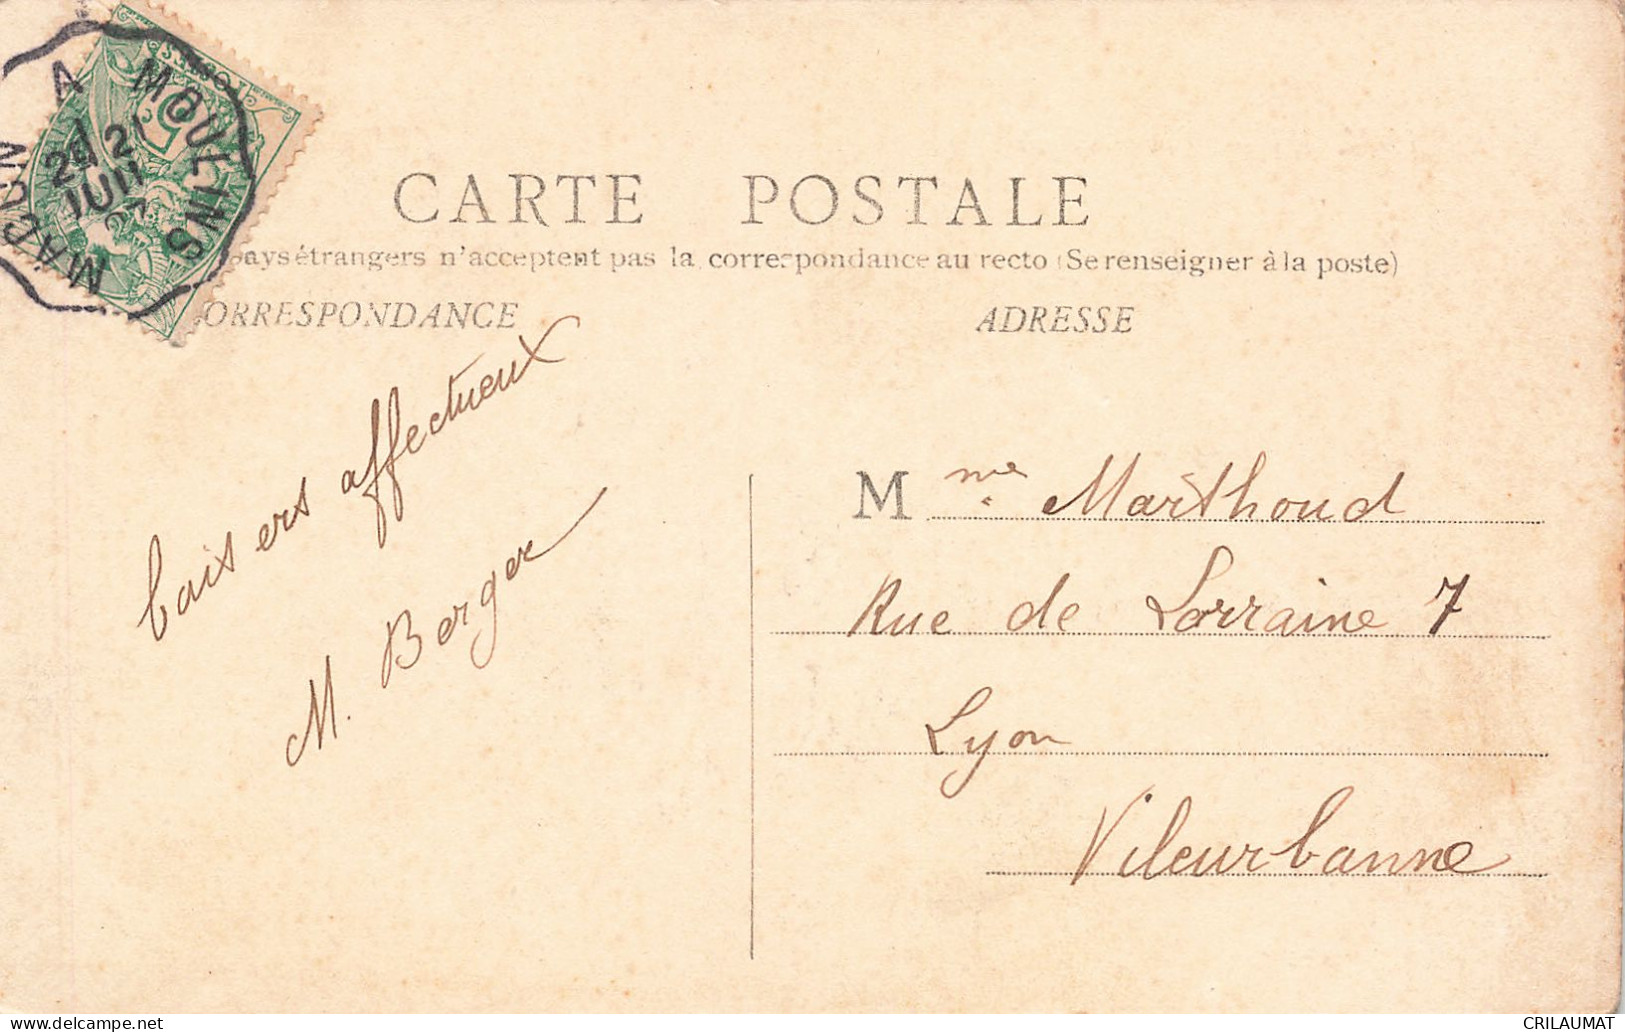 MÂCON A MOULINS
21
JUIL
07
5
CARTE POSTALE
pays étrangers n'acceptent pas la correspondance au recto (Se renseigner à la poste)
CORRESPONDANCE
ADRESSE
baisers affectueux
M. Berger
Mme Marthoud
Rue de Lorraine 7
Lyon
Vileurbanne
CRILAUMAT